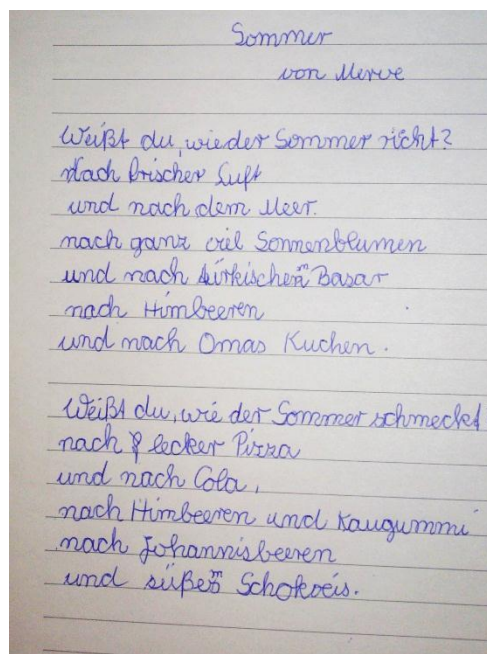 Sommer
von Merve
Weißt du, wie der Sommer richt?
Nach frischer Luft
und nach dem Meer.
nach ganz viel Sonnenblumen
und nach türkischem Basar
nach Himbeeren
und nach Omas Kuchen.
Weißt du, wie der Sommer schmeckt
nach lecker Pizza
und nach Cola,
nach Himbeeren und Kaugummi
nach Johannisbeeren
und süßem Schokoeis.